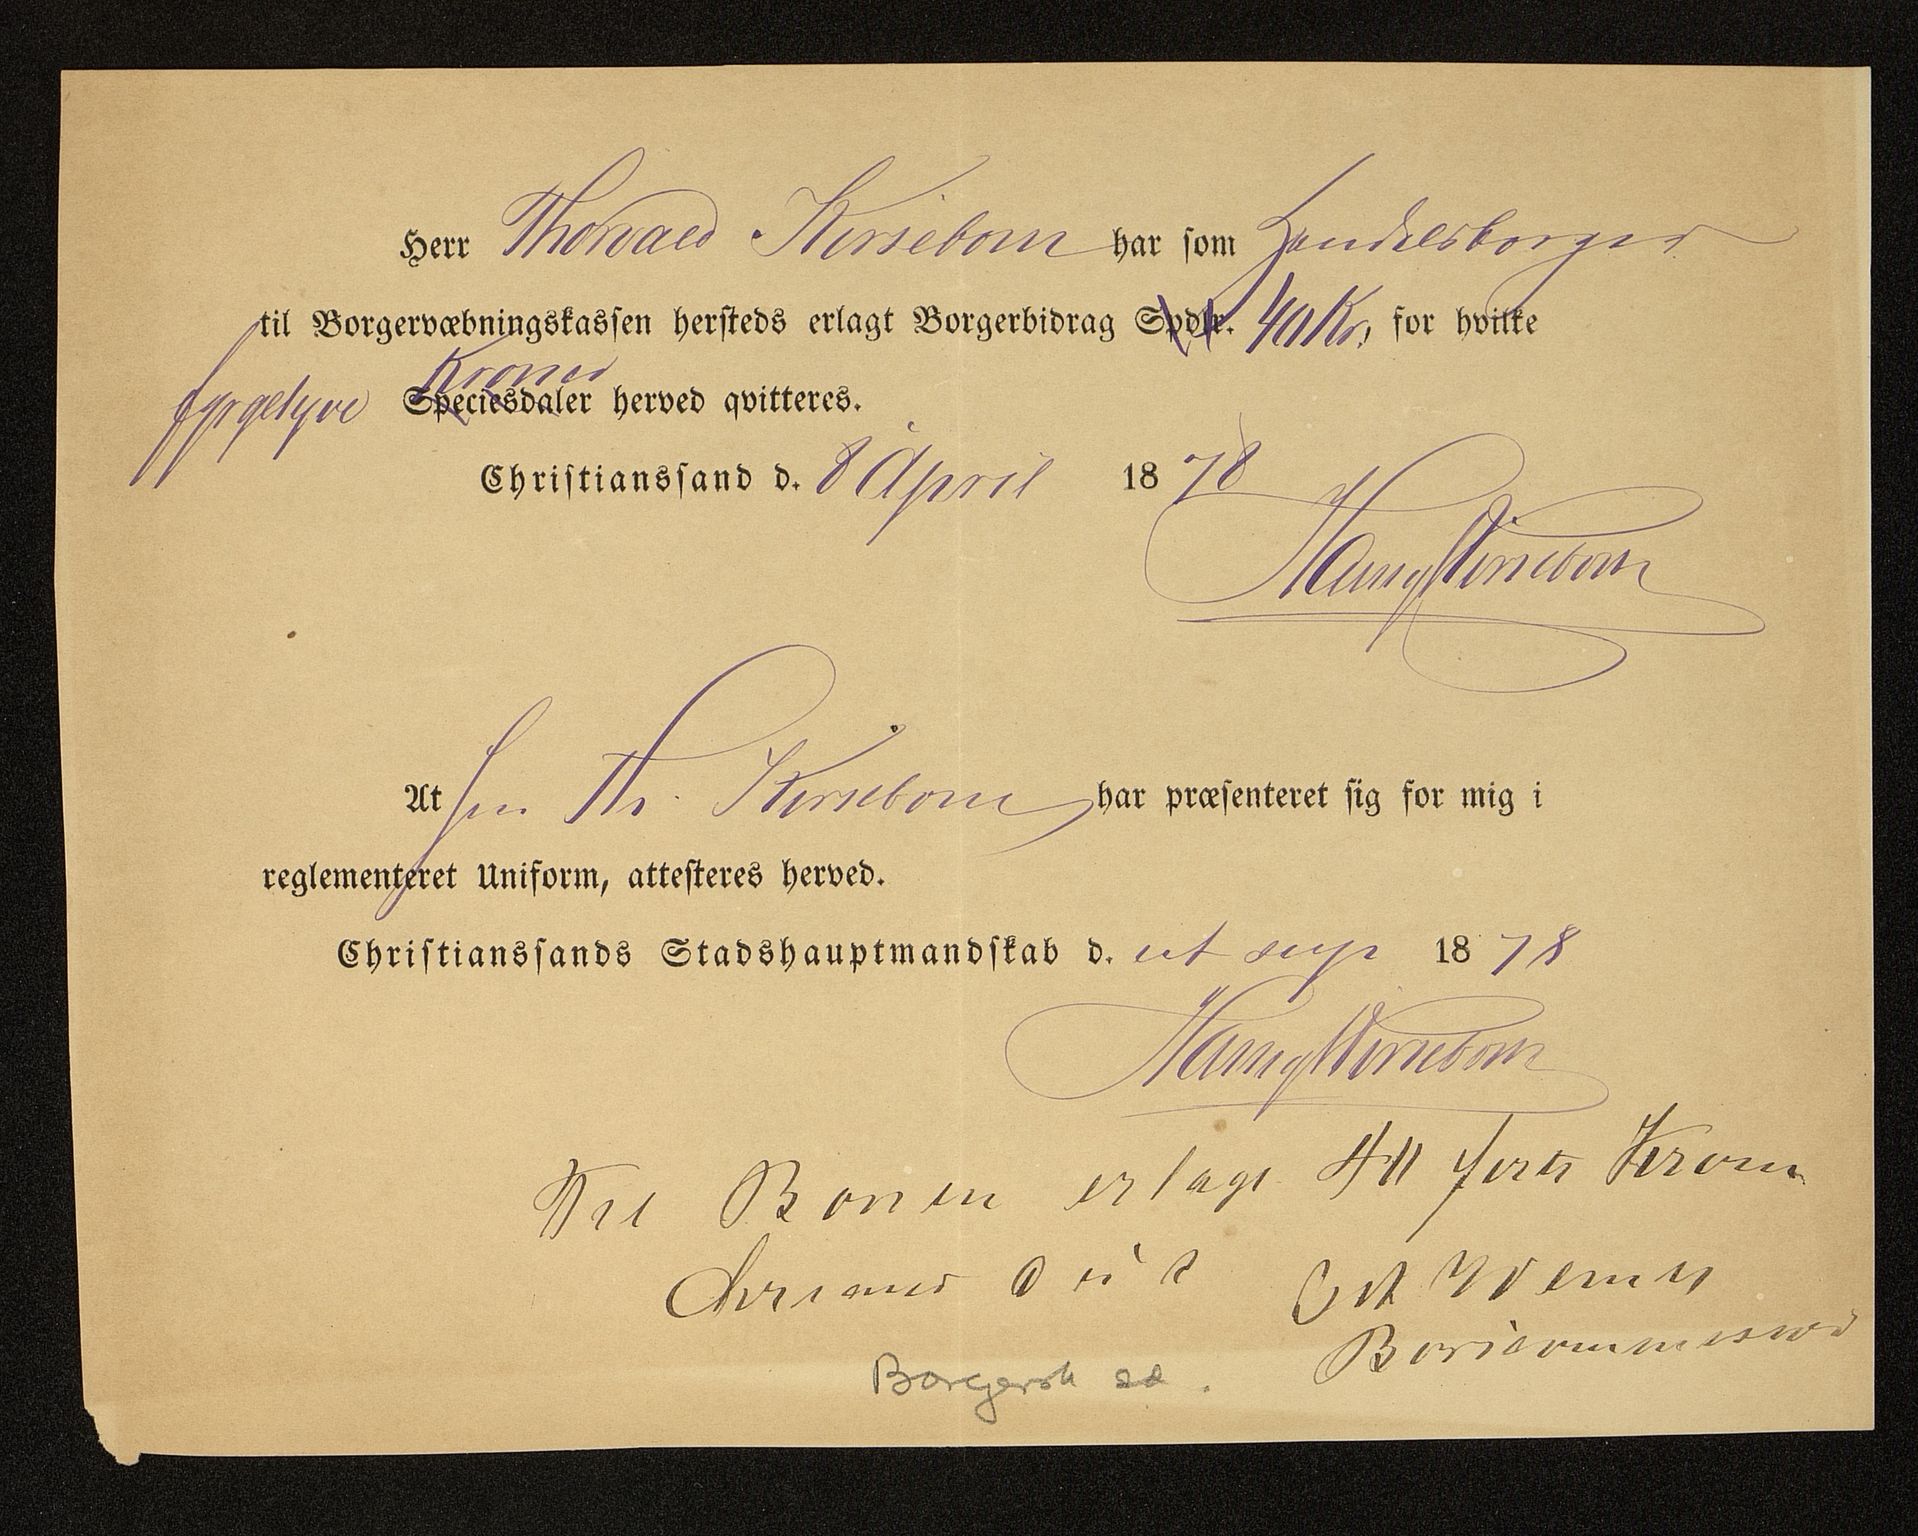 Herr Thorvald Kirsebom har som Handelsborger
til Borgervæbningskassen hersteds erlagt Borgerbidrag Spdlr. 40 Kr, for hvilke
fyrgetyve Kroner Speciesdaler herved qvitteres.
Christianssand d. 8 April 1878
Kirsebom
At Hr. Th. Kirsebom har præsenteret sig for mig i
reglementeret Uniform, attesteres herved.
Christianssands Stadshauptmandskab d. ut supr 1878
Kirsebom
Til Börsen erlagt 40 forti Kroner
Börscommissair
Borgersk ed.